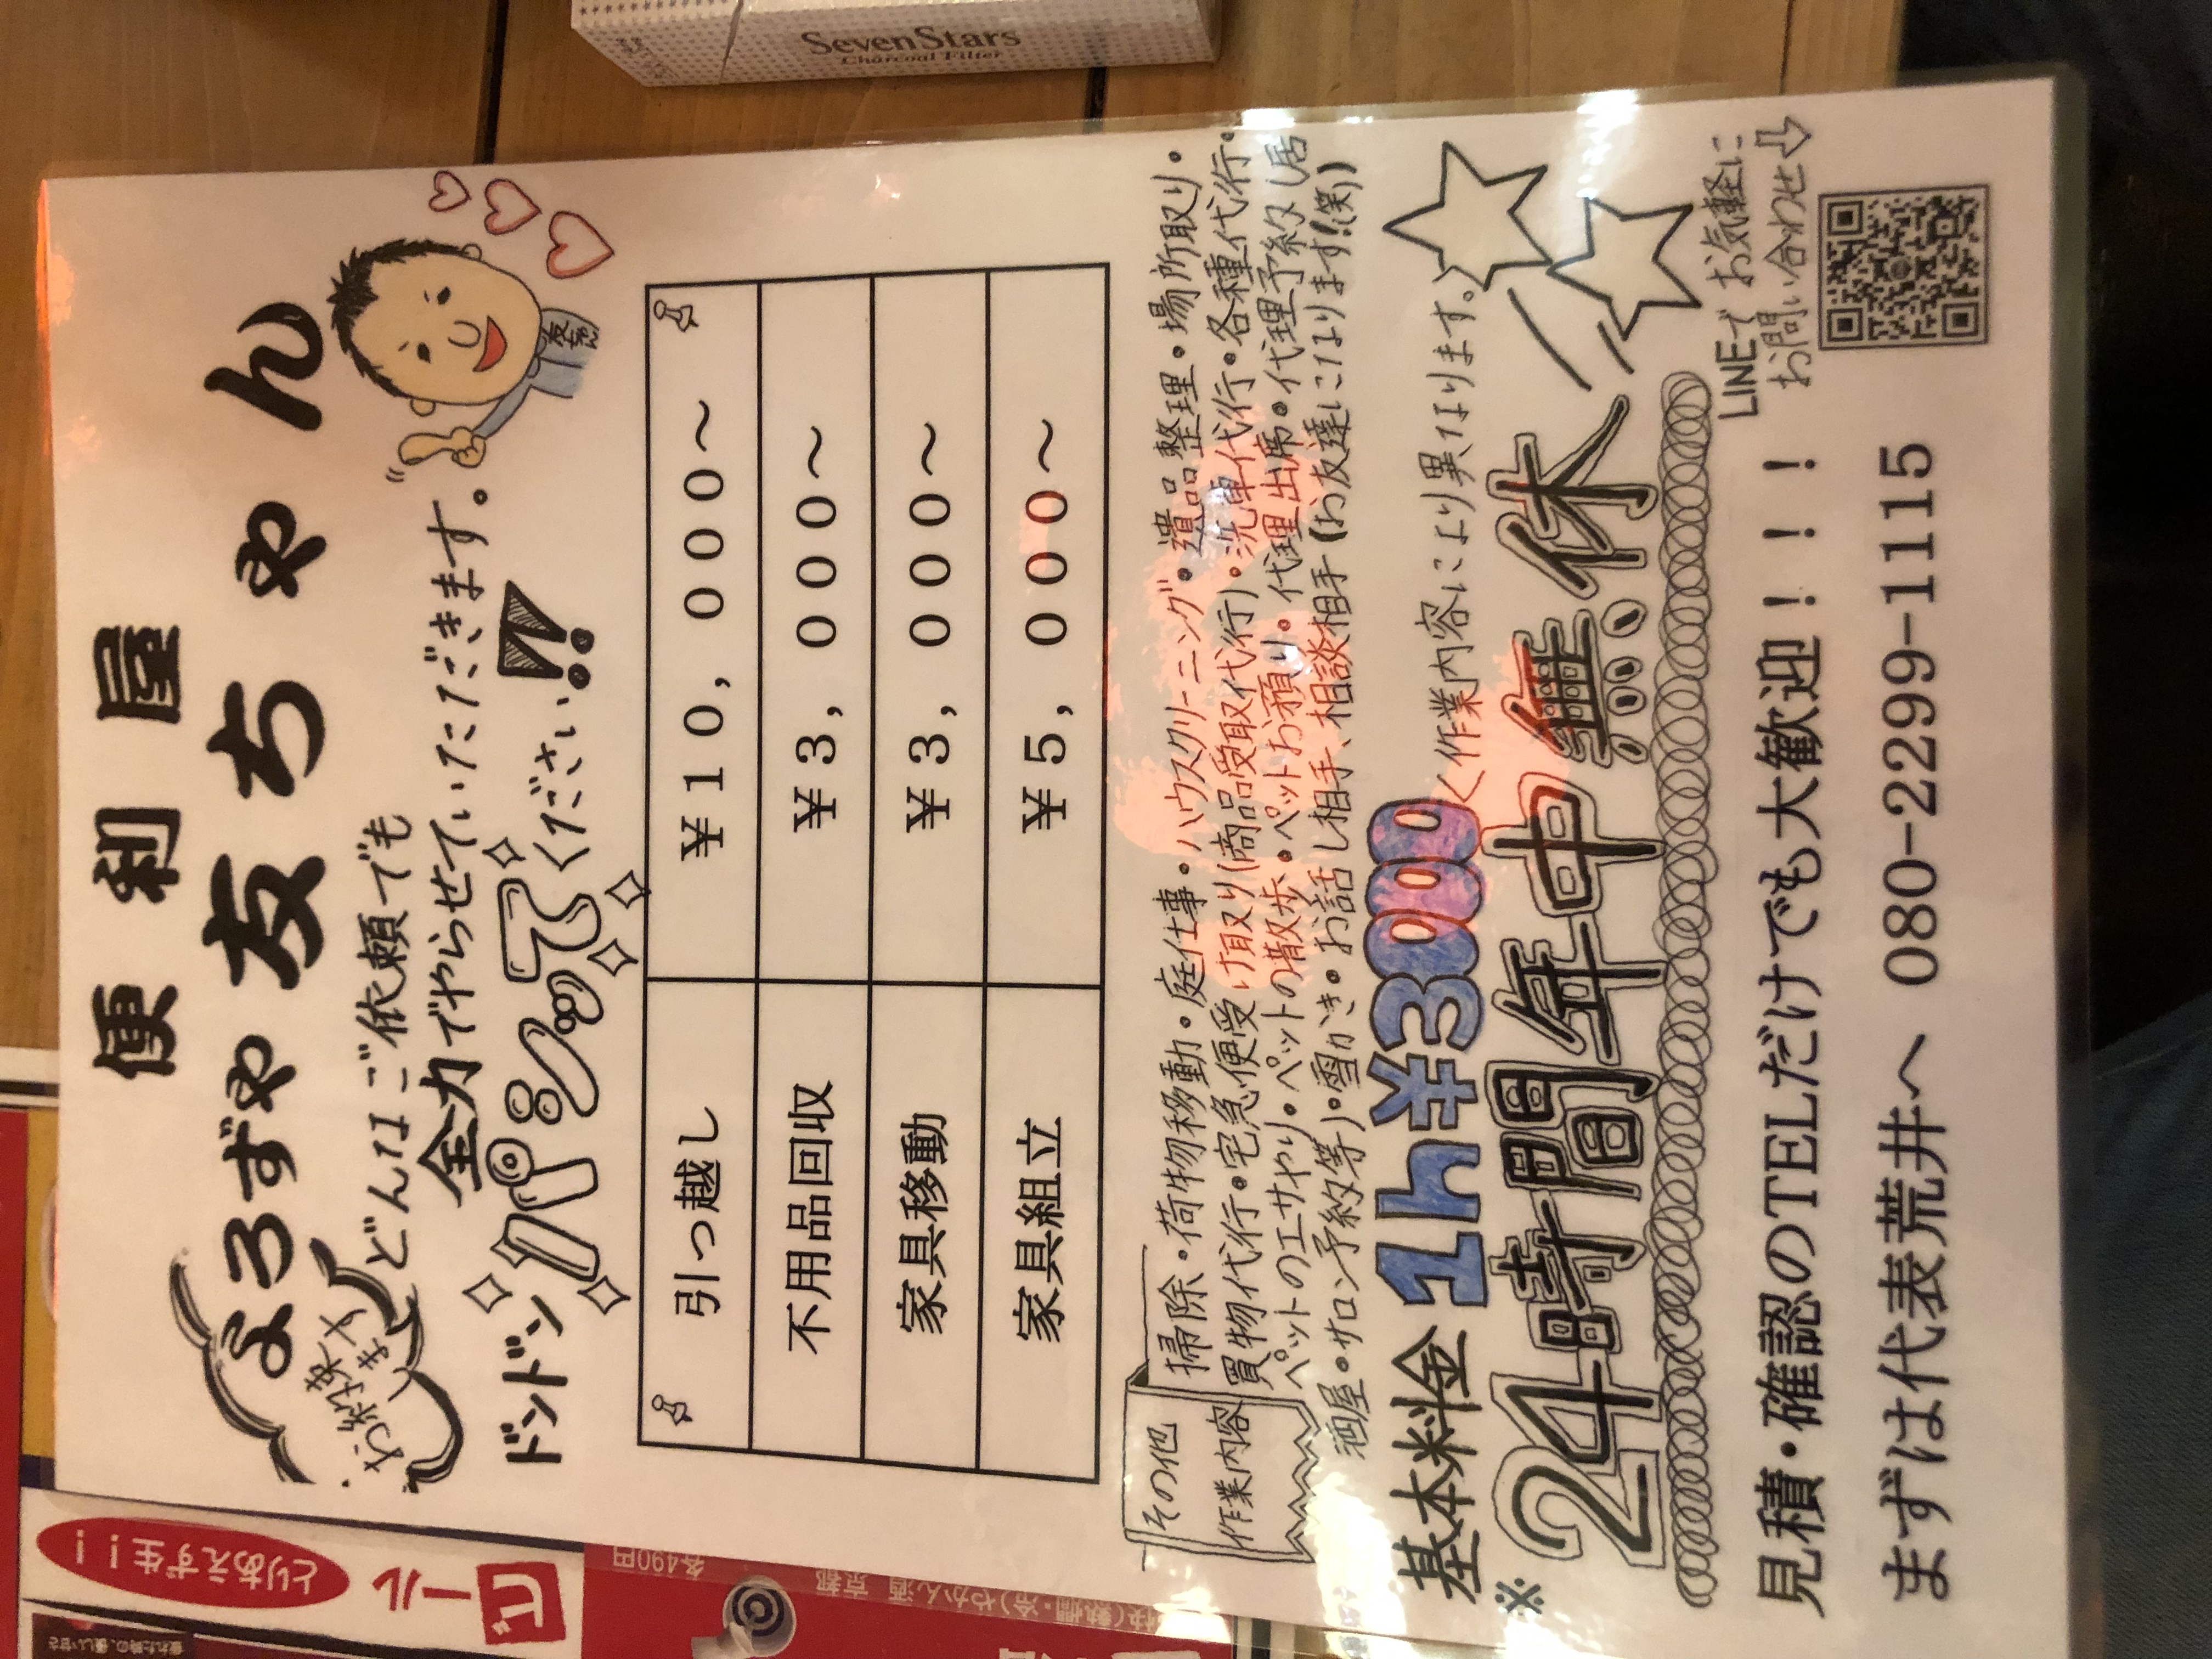 SevenStars
Charcoal Filter
便利屋
よろずや友ちゃん
お約束します
どんなご依頼でも
全力でやらせていただきます。
ドンドン
ください!!
引っ越し ￥１０，０００～
不用品回収 ￥３，０００～
家具移動 ￥３，０００～
家具組立 ￥５，０００～
その他
作業内容
掃除・荷物移動・庭仕事・ハウスクリーニング・遺品整理・場所取り・
買物代行・宅急便受け取り(商品受取代行)・洗車代行・各種代行・
ペットのエサやり・ペットの散歩・ペットお預り・代理出席・代理予約(居
酒屋・サロン予約等)・雪かき・お話し相手、相談相手(お友達になります!(笑))
基本料金 1h¥3000 〈作業内容により異なります。〉
※24時間年中無休
見積・確認のTELだけでも大歓迎！！！
LINEでお気軽に
お問い合わせ
まずは代表荒井へ 080-2299-1115
とりあえず生!!
ビール
各490円